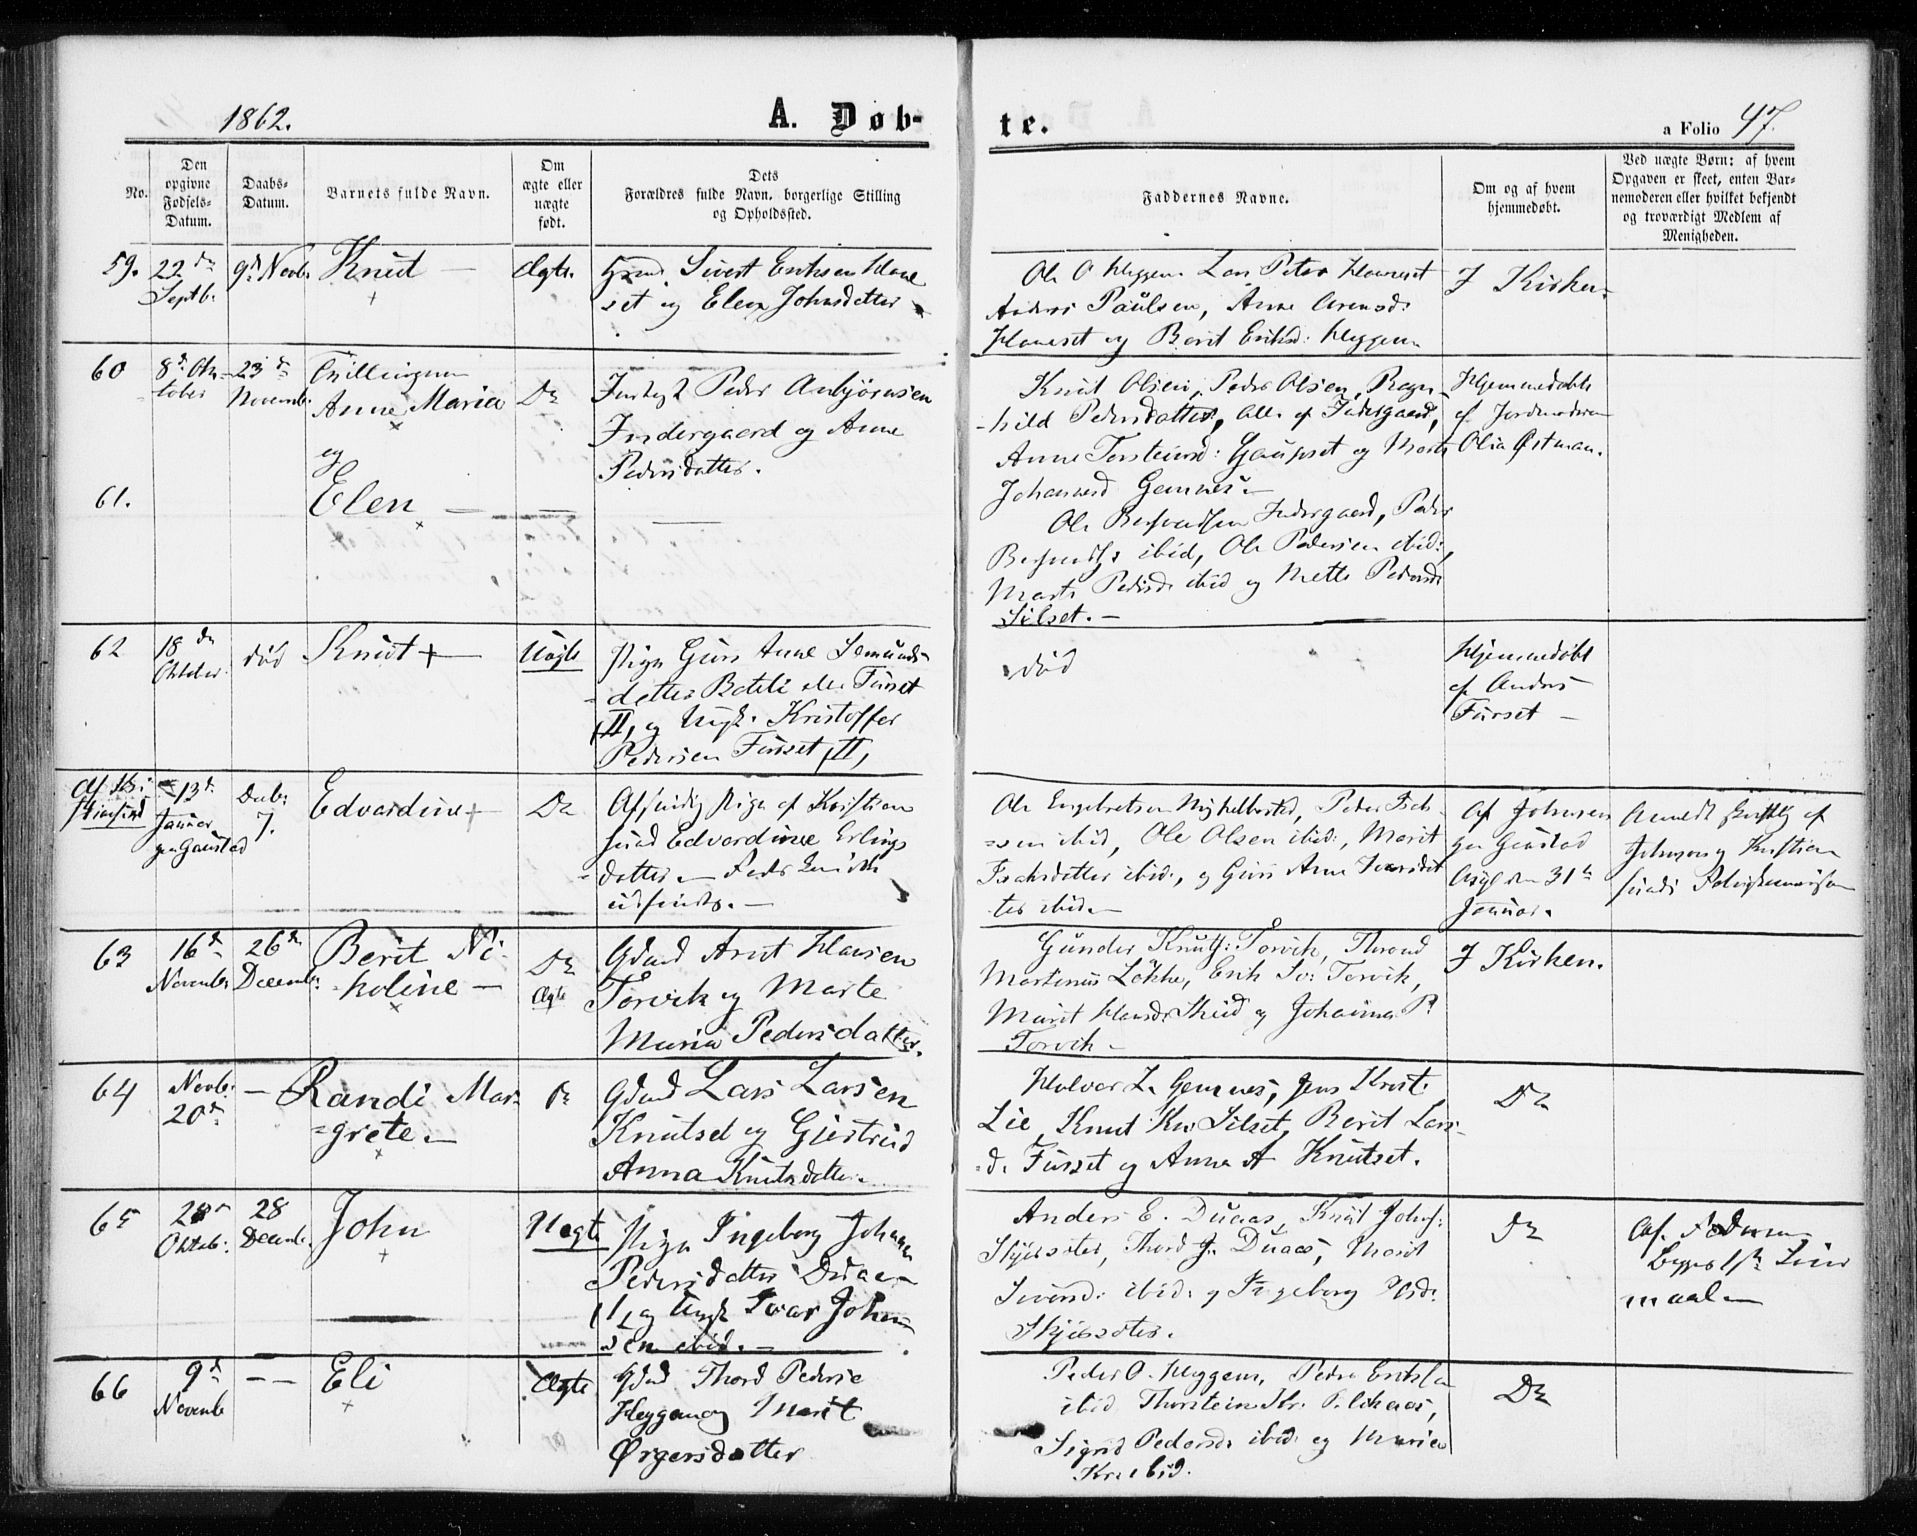 1862.
A. Døb-
te.
a Folio 47.
No.
Den
opgivne
Fødsels-
Datum.
Daabs-
Datum.
Barnets fulde Navn.
Om
ægte eller
uægte
født.
Dets
Forældres fulde Navn, borgerlige Stilling
og Opholdssted.
Faddernes Navne.
Om og af hvem
hjemmedøbt.
Ved uægte Børn: af hvem
Opgaven er skeet, enten Bar-
nemoderen eller hvilket bekjendt
og troværdigt Medlem af
Menigheden.
59.
22 de
Septb.
9d Novb.
Knud —
Ægte
Sivert Eriksen Hane
set og Elen Johnsdatter
Ole O Heggem Lars Peter Haneset
Anders Paulsen, Anne
Haneset og Berit Eriksd: Heggem
I Kirken.
60
8d Ok-
tober
23 d
Novemb.
Tvillingerne
Anne Maria
og
Do
Peder Anbjørnsen
Indergaard og Anne
Pedersdatter.
Knut Olsen, Peder Olsen, Ragn
hild Pedersdatter, alle af Indergaard,
Anne Torsteinsd: Gaupset og Marte
Johannesd Gemnes —
Hjemmedøbt
af Jordmoderen
Olia Østman.
61.
Elen —
—
—
Ole Indergaard, Peder
ibid, Ole Pedersen ibid:,
Marte Pedersd. ibid og Mette Pedersd
Silset. —
62
18 de
Oktober.
død
Knut + —
Uægte
Pige Guri Anne Semunds-
datter Botele eller Furset
II, og Ungk. Kristoffer
Pedersen Furset, II,
død
Hjemmedøbt
af Anders
Furset —
13d
Januar
paa Gaustad
Decbr
7.
Edvardine +
Do
Pige af Kristian
sund Edvardine Erlings
datter —
Ole Engebretsen Myskelbostad, Peder Isak-
sen ibid, Ole Olsen ibid:, Marit
Isaksdatter ibid:, og Guri Anne Iversdat
ter ibid.
Af Johnsen
paa Gaustad
31te
Januar.
Anmeldt skriftlig af
Johnsen og Kristian
sunds
63
16d
November
26d
December.
Berit Ni-
koline —
Do
Ægte
Gdmd Arnt Hansen
Torvik og Marte
Maria Pedersdatter.
Gunder Knuts: Torvik, Thrond
Martinus Løkke, Erik Iv: Torvik,
Marit Hansdr. og Johanna P.
Torvik —
I Kirken.
64
Novb.
20d
—
Randi Mar-
grete —
Do
Gdmd Lars Larsen
Knutset og Gjertrud
Anna Knutsdatter.
Halvor L. Gemnes, Jens Krist.
Lie, Knut Kr. Silset, Berit Lars-
d. Furset og Anne A Knutset.
Do
65
Oktob:
28
Decemb.
John
Uægte
Pige Ingeborg Johanna
Pedersdatter Duaas
I, og Ungk Ivar John
sen ibid. —
Anders E. Duaas, Knut Johns:
Thord J. Duaas, Marit
Siversd: ibid: og Ingeborg
Do
66
9d
Novemb
— —
Eli
Ægte
Gdmd Thord Pedersen
Heggem og Marit
Ørgersdatter
Peder O. Heggem, Peder Eriksen
ibid Thorstein
Sigrid Pedersd ibid: og Marie
Kr. ibid.
Do